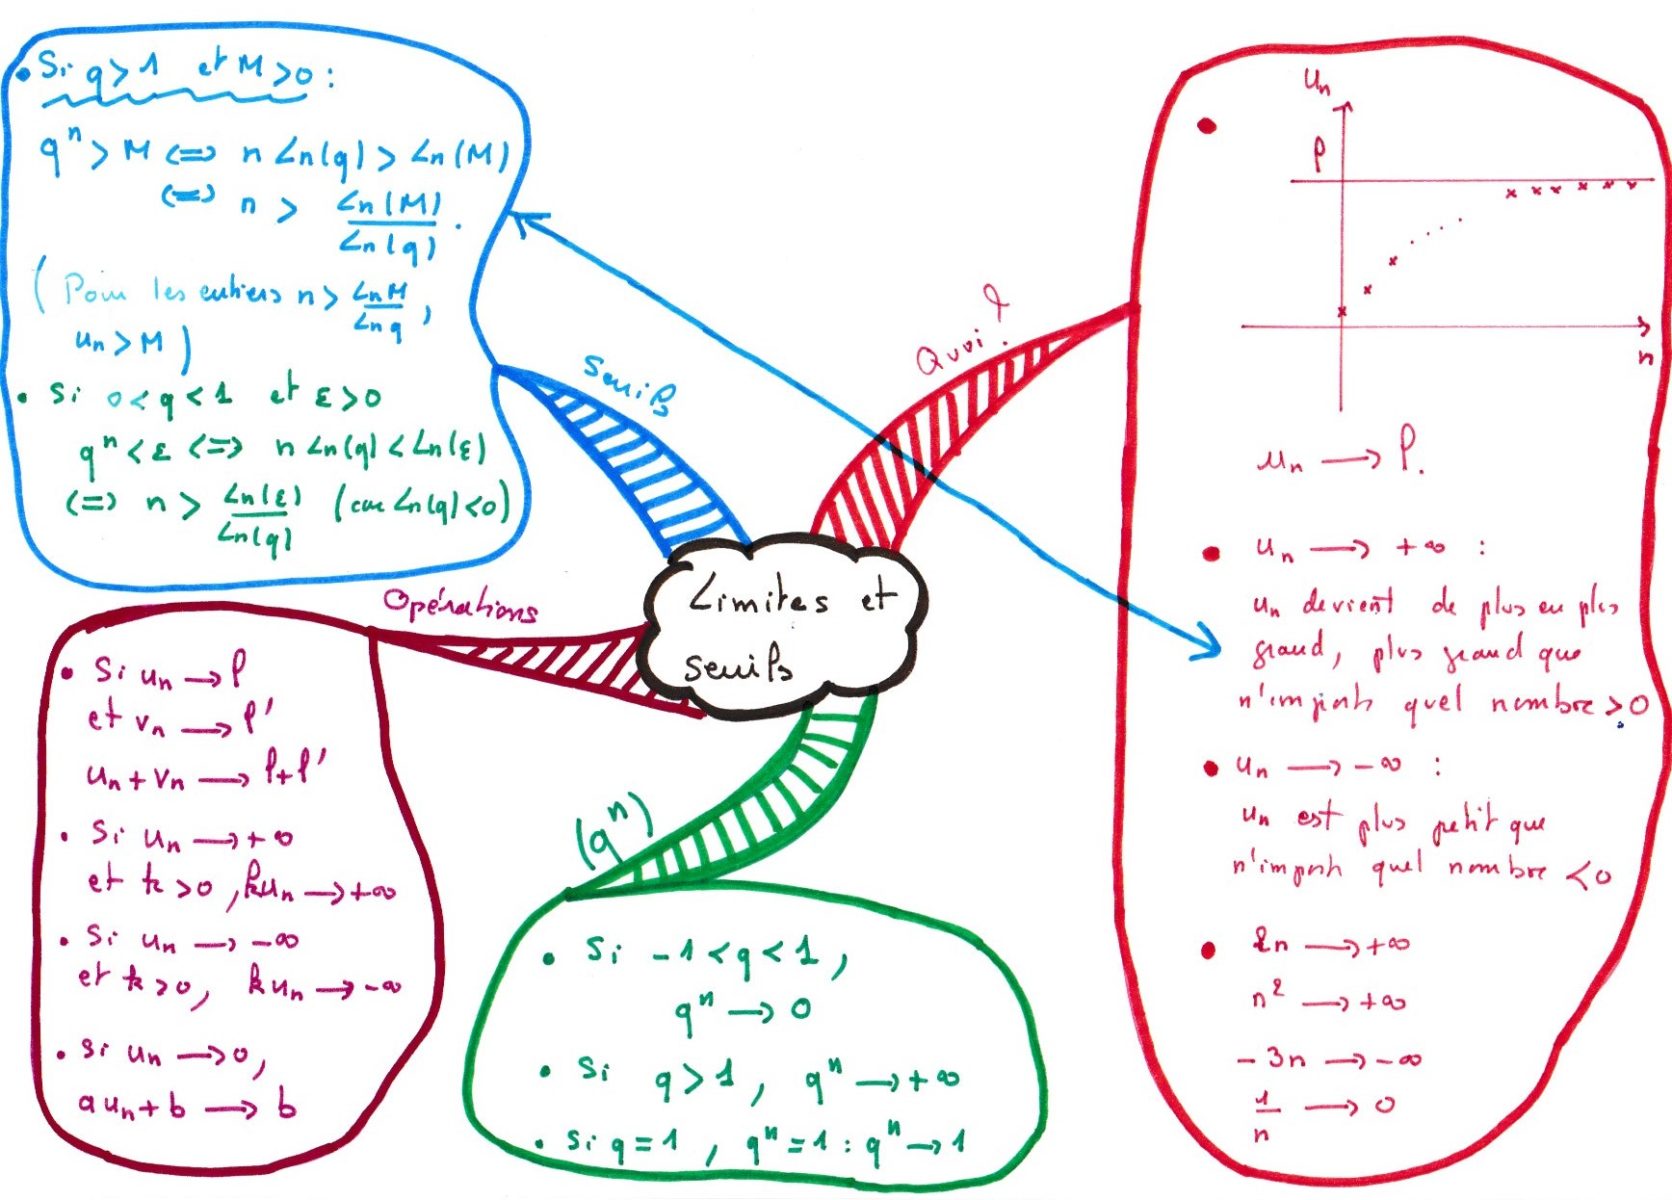 Limites et
seuils
Seuils
• Si q > 1 et M > 0 :
qⁿ > M <=> n Ln(q) > Ln(M)
<=> n > Ln(M)/Ln(q).
(Pour les entiers n > LnM/Lnq,
un > M)
• Si 0 < q < 1 et ε > 0
qⁿ < ε <=> n Ln(q) < Ln(ε)
<=> n > Ln(ε)/Ln(q) (car Ln(q) < 0)
Quoi ?
un
l
n
un → l.
• un → +∞ :
un devient de plus en plus
grand, plus grand que
n'importe quel nombre > 0
• un → -∞ :
un est plus petit que
n'importe quel nombre < 0
• 2n → +∞
n² → +∞
-3n → -∞
1/n → 0
Opérations
• Si un → l
et vn → l'
un + vn → l + l'
• Si un → +∞
et k > 0, kun → +∞
• Si un → -∞
et k > 0, kun → -∞
• Si un → 0,
aun + b → b
(qⁿ)
• Si -1 < q < 1,
qⁿ → 0
• Si q > 1, qⁿ → +∞
• Si q = 1, qⁿ = 1 : qⁿ → 1